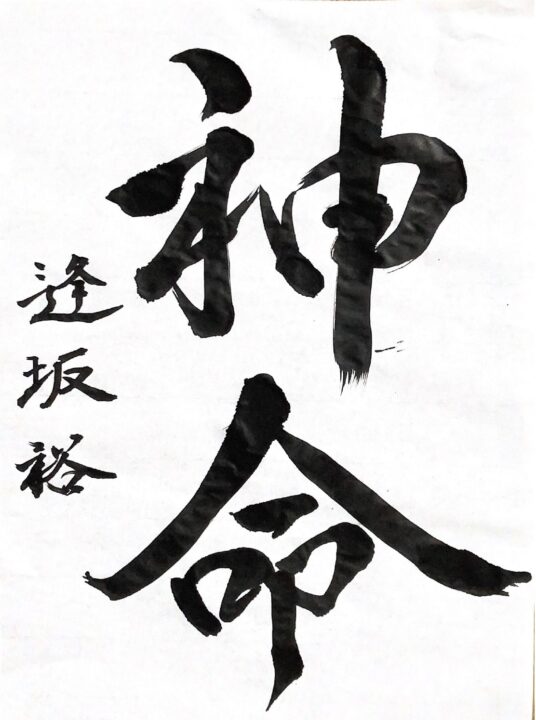 神命
逢坂裕